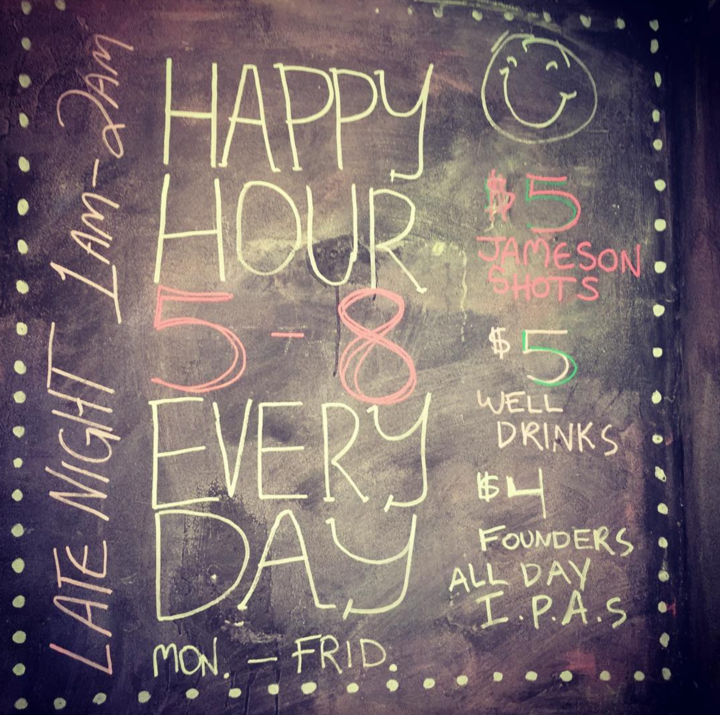 LATE NIGHT 1AM-2AM
HAPPY
HOUR
5-8
EVERY
DAY
MON. - FRID.
$5
JAMESON
SHOTS
$5
WELL
DRINKS
$4
FOUNDERS
ALL DAY
I.P.A.S